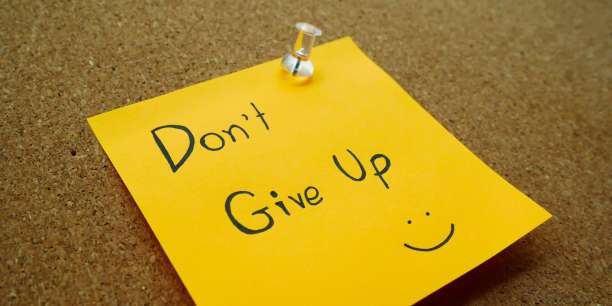 Don't
Give Up